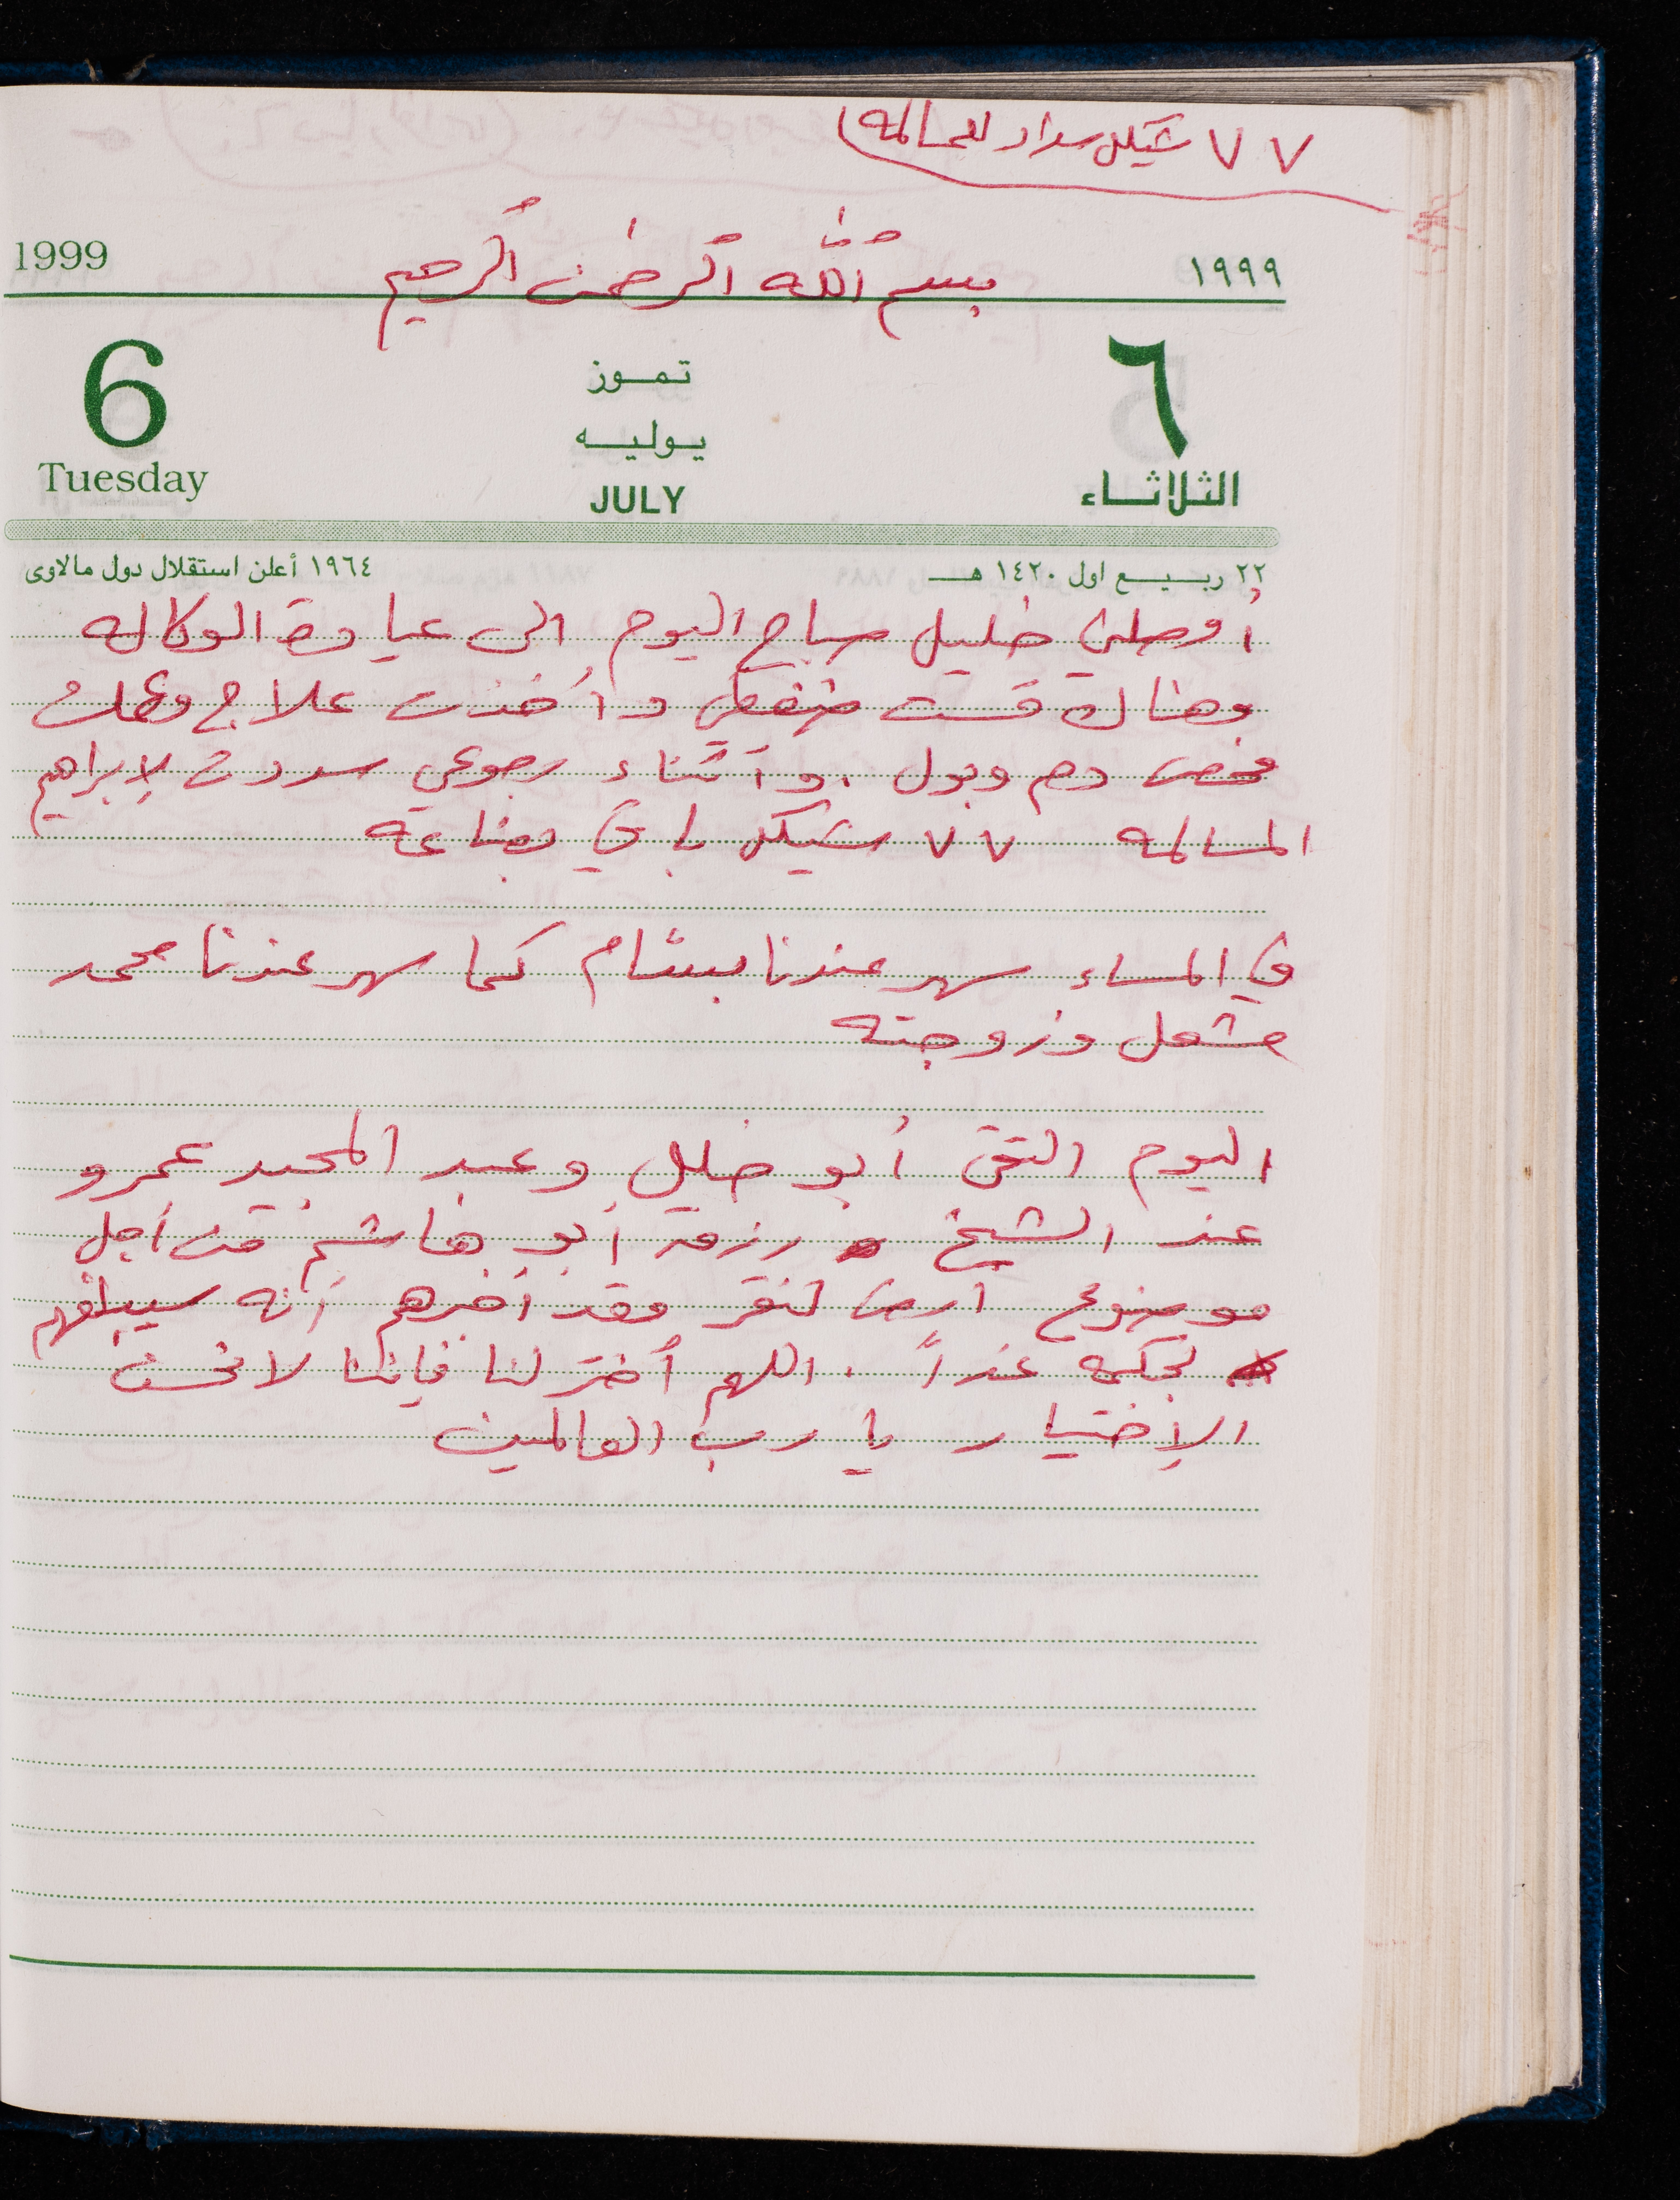 ٧٧ شيكل سداد للمسالمه
بسم الله الرحمن الرحيم
1999 ١٩٩٩
6 تمــوز ٦
يـوليــه
Tuesday JULY الثلاثـاء
٢٢ ربـيــع اول ١٤٢٠ هـ ١٩٦٤ أعلن استقلال دول مالاوى
أوصلني خليل صباح اليوم الى عيادة الوكاله
وهناك قست ضغطي وأخذت علاج وعملت
فحص دم وبول . وأثناء رجوعي سددت لإبراهيم
المسالمه ٧٧ شيكل باقي بضاعة
في المساء سهر عندنا بسّام كما سهر عندنا محمد
مشعل وزوجته
اليوم التقى أبو خليل وعبد المجيد عمرو
عند الشيخ رزق أبو هاشم من أجل
موضوع أرض لنقر وقد أخبرهم أنه سيبلغهم
بحكمه غداً . اللهم أختر لنا فإننا لا نحسن
الإختيار يا رب العالمين